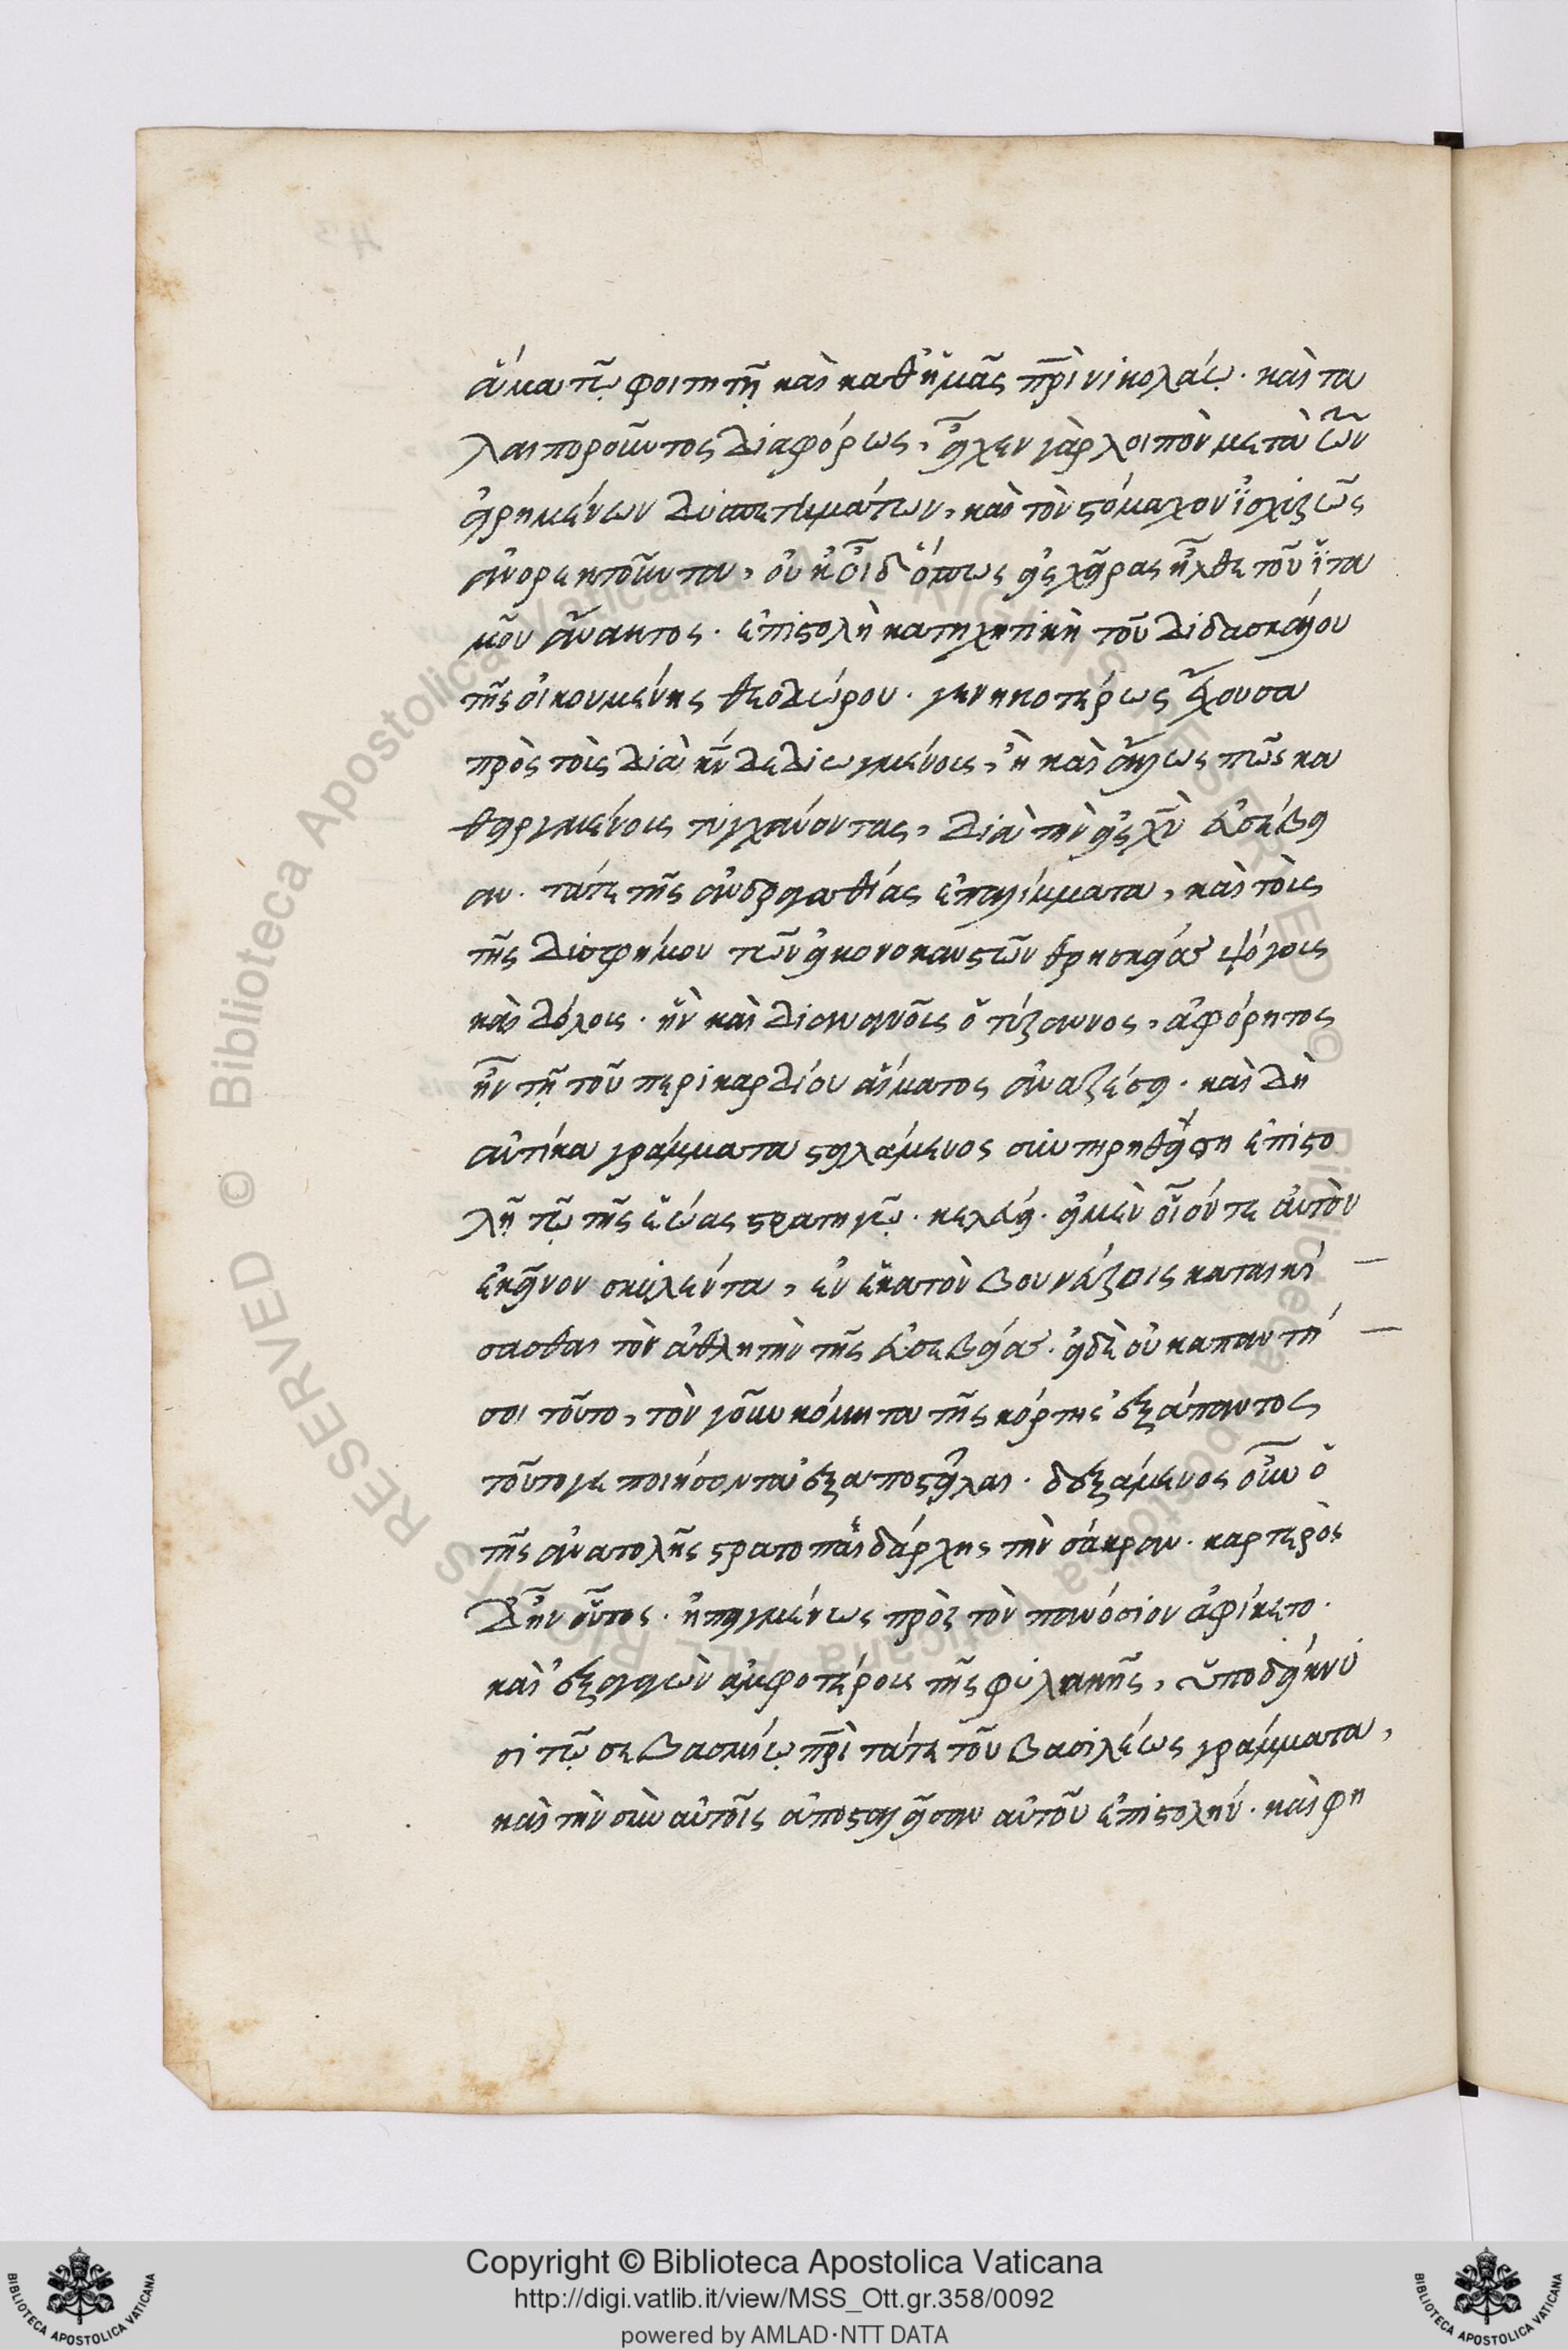 ἅμα τῷ φοιτητῇ καὶ καθ' ἡμᾶς πρὶ νικολάῳ. καὶ τα
λαιποροῦντος διαφόρως, εἶχεν γὰρ λοιπὸν μετὰ τῶν
εἰρημένων καὶ τὸν στόμαχον ἰσχυρῶς
ἀνορεκτοῦντα, οὐκ οἶδ' ὅπως εἰς χεῖρας ἦλθε τοῦ ἰτα
μοῦ ἄνακτος. ἐπιστολὴ κατηχητικὴ τοῦ διδασκάλου
τῆς οἰκουμένης θεοδώρου. γενηκοτέρως ἔχουσα
πρὸς τοὺς διὰ κν δεδιωγμένους, ἢ καὶ ἄλλως πῶς κα
θειργμένους τυγχάνοντας, διὰ τὴν εἰς χν εὐσέβει
αν. τά τε τῆς ἀνδραγαθίας καὶ τοὺς
τῆς δυστρήμου τῶν εἰκονοκαυστῶν θρησκείας ψόγους
καὶ δόλους. ἣν καὶ διαναγνοὺς ὁ τύραννος, ἀφόρητος
ἦν τῇ τοῦ περικαρδίου αἵματος ἀναζέσει. καὶ δὴ
αὐτίκα γράμματα στειλάμενος συντηρηθείσῃ ἐπιστο
λῇ τῷ τῆς ἑώας στρατηγῷ. κελεύει. εἰ μὲν οἷόν τε αὐτὸν
ἐκεῖνον σκυλέντα, ἐν ἑκατὸν βουνεύροις καταικί
σασθαι τὸν ἀθλητὴν τῆς εὐσεβείας. εἰ δὲ οὐ καπαντή
σοι τοῦτο, τὸν γοῦν κόμητα τῆς κόρτης ἐξάπαντος
τοῦτο γε ποιήσοντα ἐξαποστεῖλαι. δεξάμενος οὖν ὁ
τῆς ἀνατολῆς στρατοπαιδάρχης τὴν σάκραν. καρτερὸς
δ' ἦν οὗτος. ἠπειγμένως πρὸς τὸν πανόσιον ἀφίκετο.
καὶ ἐξαγαγὼν ἀμφοτέρους τῆς φυλακῆς, ὑποδείκνυ
σι τῷ σεβασμίῳ πρὶ τά τε τοῦ βασιλέως γράμματα,
καὶ τὴν σὺν αὐτοῖς ἀποσταλεῖσαν αὐτοῦ ἐπιστολήν. καὶ φη
Copyright © Biblioteca Apostolica Vaticana
http://digi.vatlib.it/view/MSS_Ott.gr.358/0092
powered by AMLAD·NTT DATA